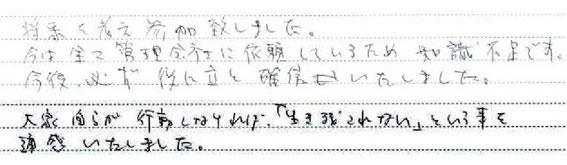 将来を考え参加致しました。
今は全て管理会社に依頼しているため知識不足です。
今後、必ず役に立と確信をいたしました。
大家自らが行動しなければ、「生き残れない」という事を
痛感いたしました。